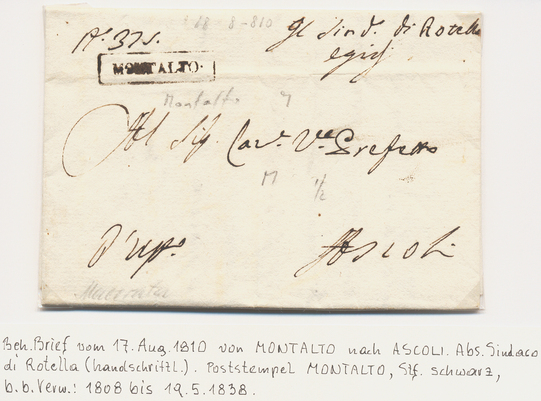 18 8-810
N. 375. Il Sind. di Rotella
MONTALTO.
Montalto
Al Sig. Cav. Vce Prefetto
M 1/2
D'uff.o Ascoli
Macerata
Beh. Brief vom 17. Aug. 1810 von MONTALTO nach ASCOLI. Abs. Sindaco
di Rotella (handschriftl.). Poststempel MONTALTO, Stf. schwarz,
b.b. Verw.: 1808 bis 19.5.1838.